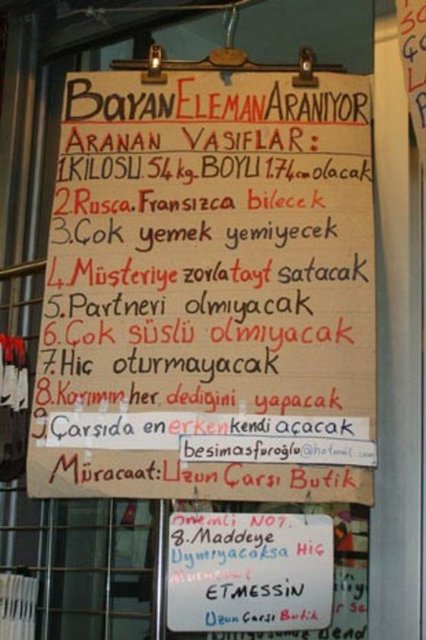 BAYAN ELEMAN ARANIYOR
ARANAN VASIFLAR:
1.KİLOSU.54 kg. BOYU 1.74cm olacak
2.Rusca.Fransızca bilecek
3.Çok yemek yemiyecek
4.Müşteriye zorla tayt satacak
5.Partneri olmıyacak
6.Çok süslü olmıyacak
7.Hiç oturmayacak
8.Karımın her dediğini yapacak
9.Çarsıda en erken kendi açacak
besimasfuroğlu@hotmail.com
Müracaat: Uzun Çarşı Butik
Önemli NOT.
8.Maddeye
Uymıyacaksa Hiç
ETMESSİN
Uzun Çarsı Butik